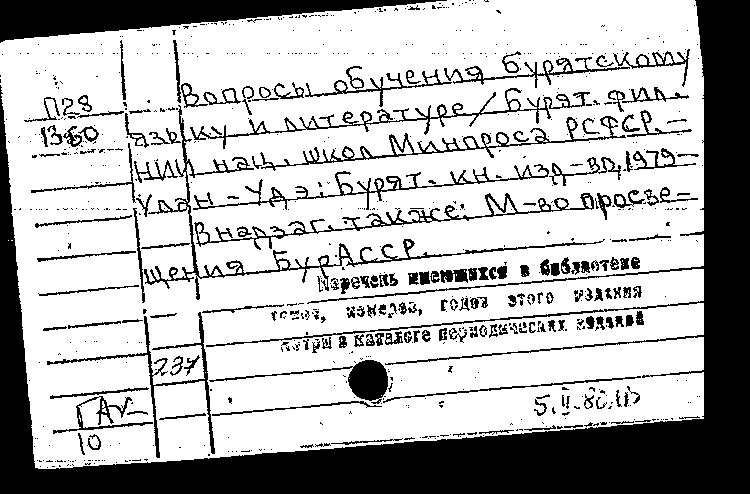 Вопросы обучения бурятскому
П28
1360
языку и литературе / Бурят. фил.
НИИ нац. школ Минпроса РСФСР. –
Улан-Удэ: Бурят. кн. изд-во, 1979–
В надзаг. также: М-во просве-
щения БурАССР.
Перечень имеющихся в библиотеке
томов, номеров, годов этого издания
смотри в каталоге периодических изданий
237
5.II.80
ГАК
10